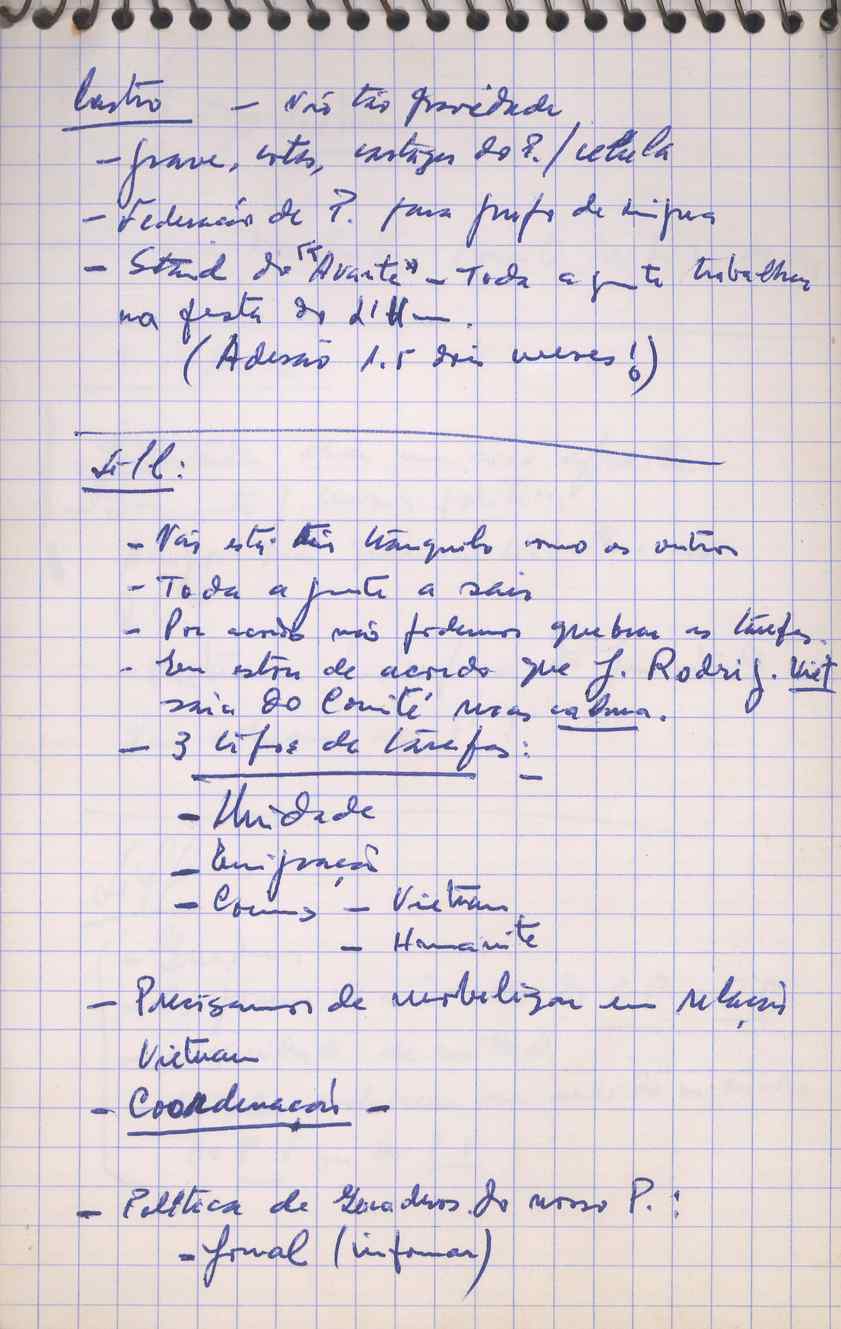 Castro — Não tão gravidade
— grave, cotas, cartazes do P./célula
— Federação de P. para grupo de língua
— Stand do "Avante" — Toda a gente trabalhar
na festa do L'H—.
(Adesão 1.5 dois meses!)
:
— Não está tão tranquilo como os outros
— Toda a gente a sair
— Por acordo não podemos quebrar as tarefas.
— Eu estou de acordo que J. Rodrig. Viet
saia do Comité mas calma.
— 3 tipos de tarefas:
— Unidade
— Emigração
— — Vietnam
— Humanité
— Precisamos de mobilizar em relação
Vietnam
— Coordenação —
— Política de Quadros do nosso P.:
— Jornal (informar)